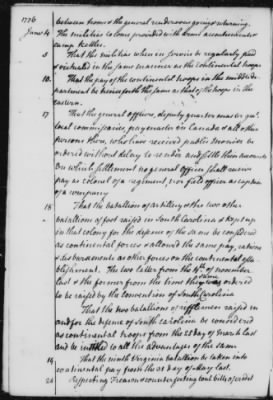 1776
June 4
between from & the general rendezvous going & returning.
The militia to come provided with arms accoutrements &
camp kettles.
5 That the militia when in service be regularly paid
& victualed in the same manner as the continental troops
16 That the pay of the continental troops in the middle de-
partment be henceforth the same as that of the troops in the
eastern.
17 That the general officers, deputy quarter master genl.
local commissaries, paymasters in Canada & all other
persons there, who have received public monies be
ordered without delay to render and settle their accounts
on which settlement no general officer shall
pay as colonel of a regiment, nor field officer as captain
of a company
18 That the batallion of artillery & the two other
batallions of foot raised in South Carolina & kept up
in that colony for the defence of the same be considered
as continental forces & allowed the same pay, rations
& disbursements as other forces on the continental esta-
blishment. The two latter from the 4th of November
last & the former from the time they were ordered
to be raised by the convention of South Carolina
That the two batallions of rifflemen raised in
and for the defence of South Carolina be considered
as continental troops from the 25 day of March last
and be entitled to all the advantages of the same
19 That the ninth Virginia batallion be taken into
continental pay from the 31 day of May last.
20 Respecting Treason & counterfeiting cont. bills of credit